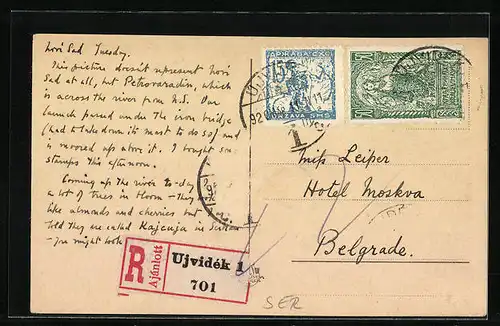 Novi Sad Tuesday.
This picture doesn't represent Novi
Sad at all, but Petrovaradin, which
is across the river from N.S. Our
launch passed under the iron bridge
(had to take down its mast to do so) and
is moored up above it. I bought some
stamps this afternoon.
Coming up the river to-day
a lot of trees in bloom - they
like almonds and cherries but
told they are called Kajcuja in
- you might look
R
Ajánlott
Ujvidék 1
701
15
ДРЖАВА СХС
DRŽAVA SHS
Miss Leiper
Hotel Moskva
Belgrade.
SER